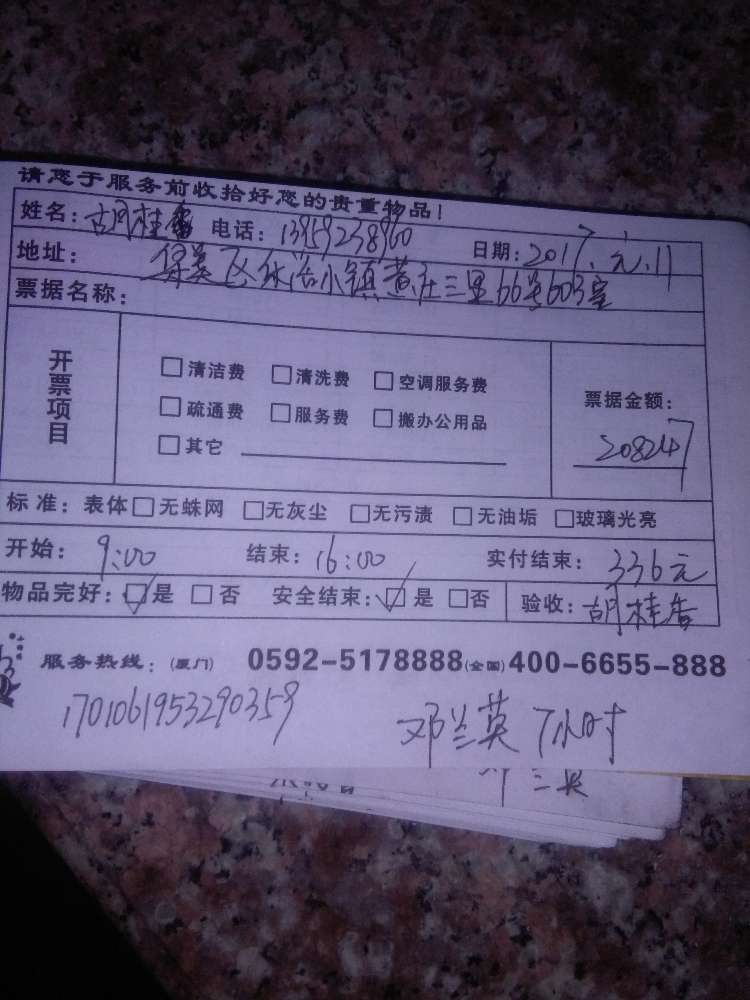 请您于服务前收拾好您的贵重物品！
姓名：胡桂香 电话：13959238960 日期：2017.元.11
地址：集美区 小镇黄庄三里66号603室
票据名称：
开票项目
□清洁费 □清洗费 □空调服务费
□疏通费 □服务费 □搬办公用品
□其它
票据金额：
208247
标准：表体□无蛛网 □无灰尘 □无污渍 □无油垢 □玻璃光亮
开始：9:00 结束：16:00 实付结束：336元
物品完好：☑是 □否 安全结束：☑是 □否 验收：胡桂香
服务热线：(厦门) 0592-5178888(全国)400-6655-888
1701061953290359 邓兰英 7小时